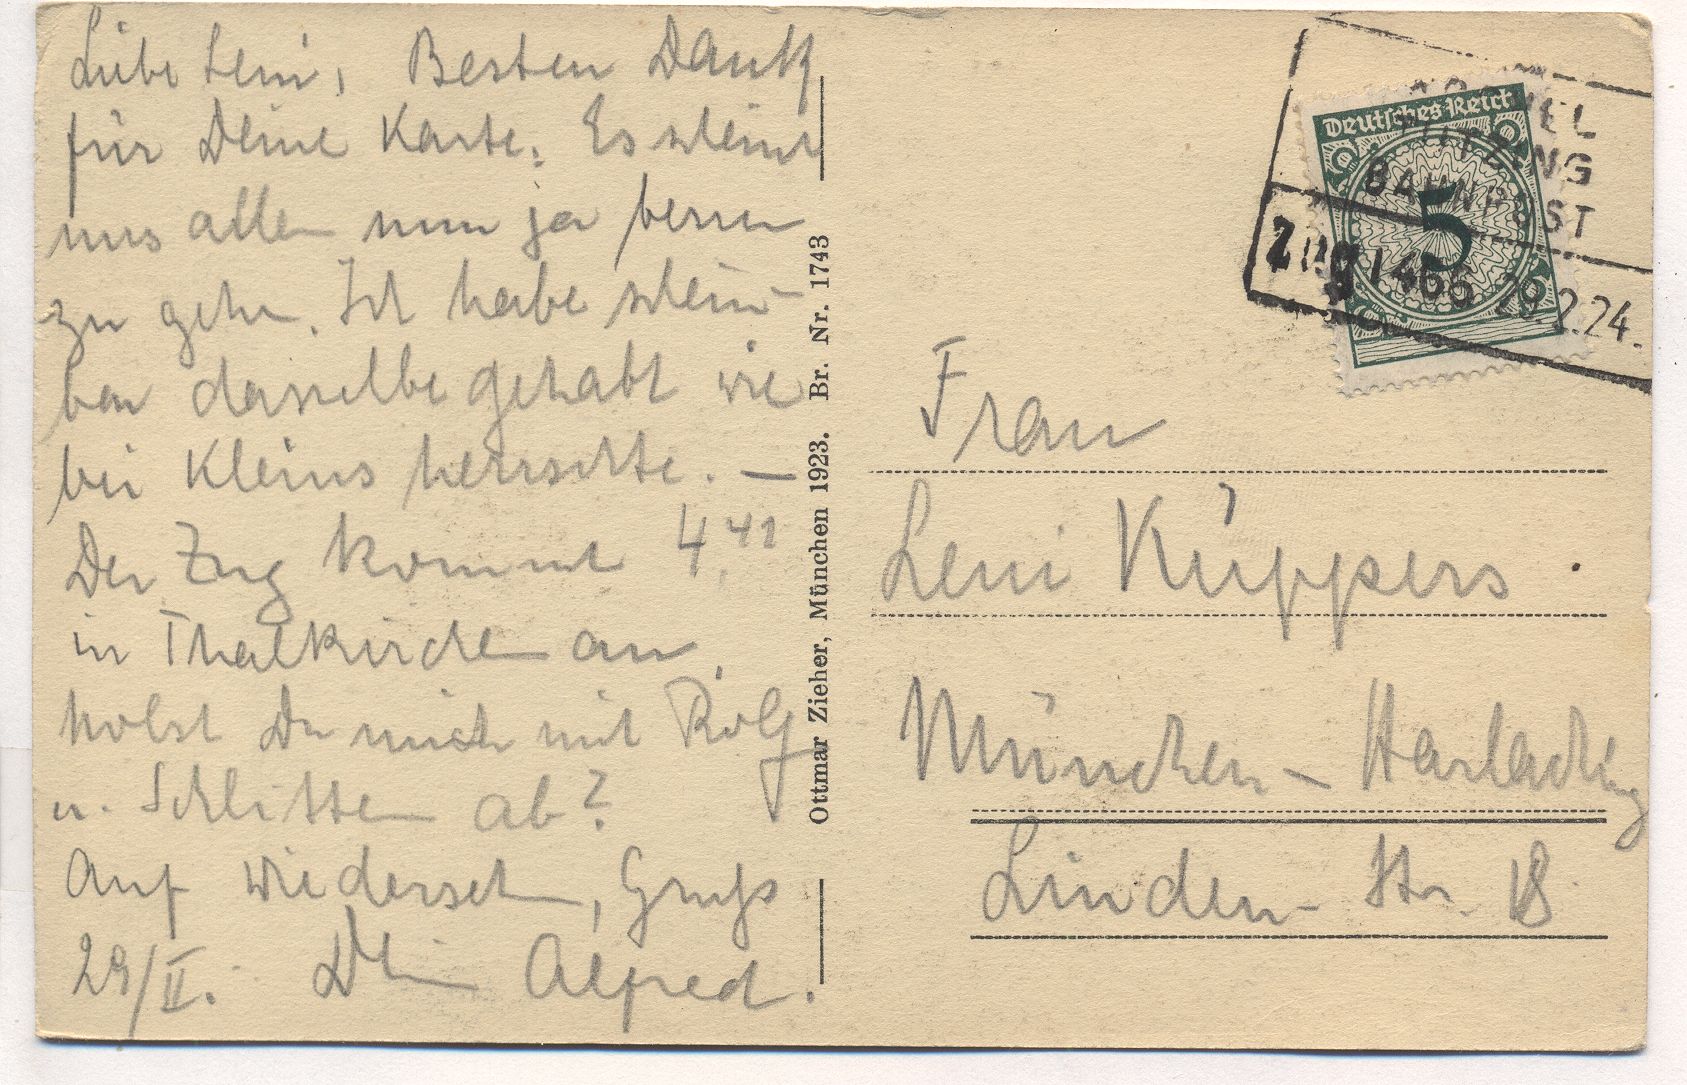 Liebe Leni, Besten Dank
für Deine Karte. Es scheint
uns allen nun ja besser
zu gehen. Ich habe schein-
bar dasselbe gehabt wie
bei Kleins herrschte. —
Der Zug kommt 4.41
in Thalkirchen an,
holst Du mich mit Rolf
u. Schlitten ab?
Auf Wiedersehen, Gruß
29/II. Dein Alfred.
Ottmar Zieher, München 1923. Br. Nr. 1743
Deutsches Reich
5
BAHNPOST
Zug 1466 29.2.24.
Frau
Leni Küppers.
München-Harlaching
Linden-Str. 18